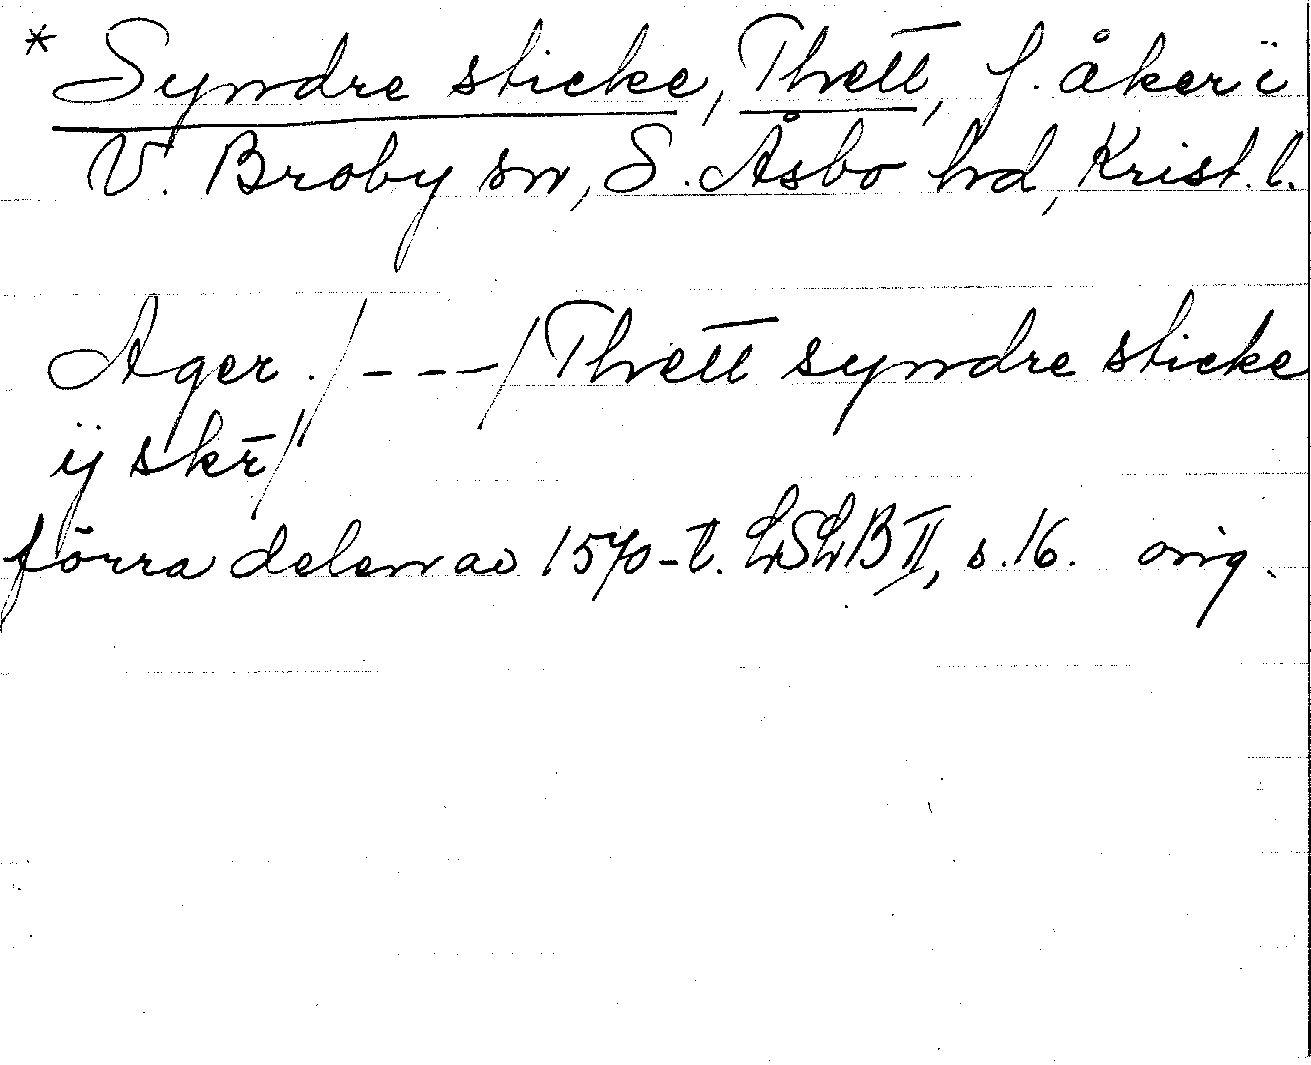 * Syndre sticke, Thett, f. åker i
V. Broby sn, S. Åsbo hd, Krist. l.
Ager. /---/ Thett syndre sticke
ij skr̄/
förra delen av 1570-t. LSLB II, s. 16. orig.